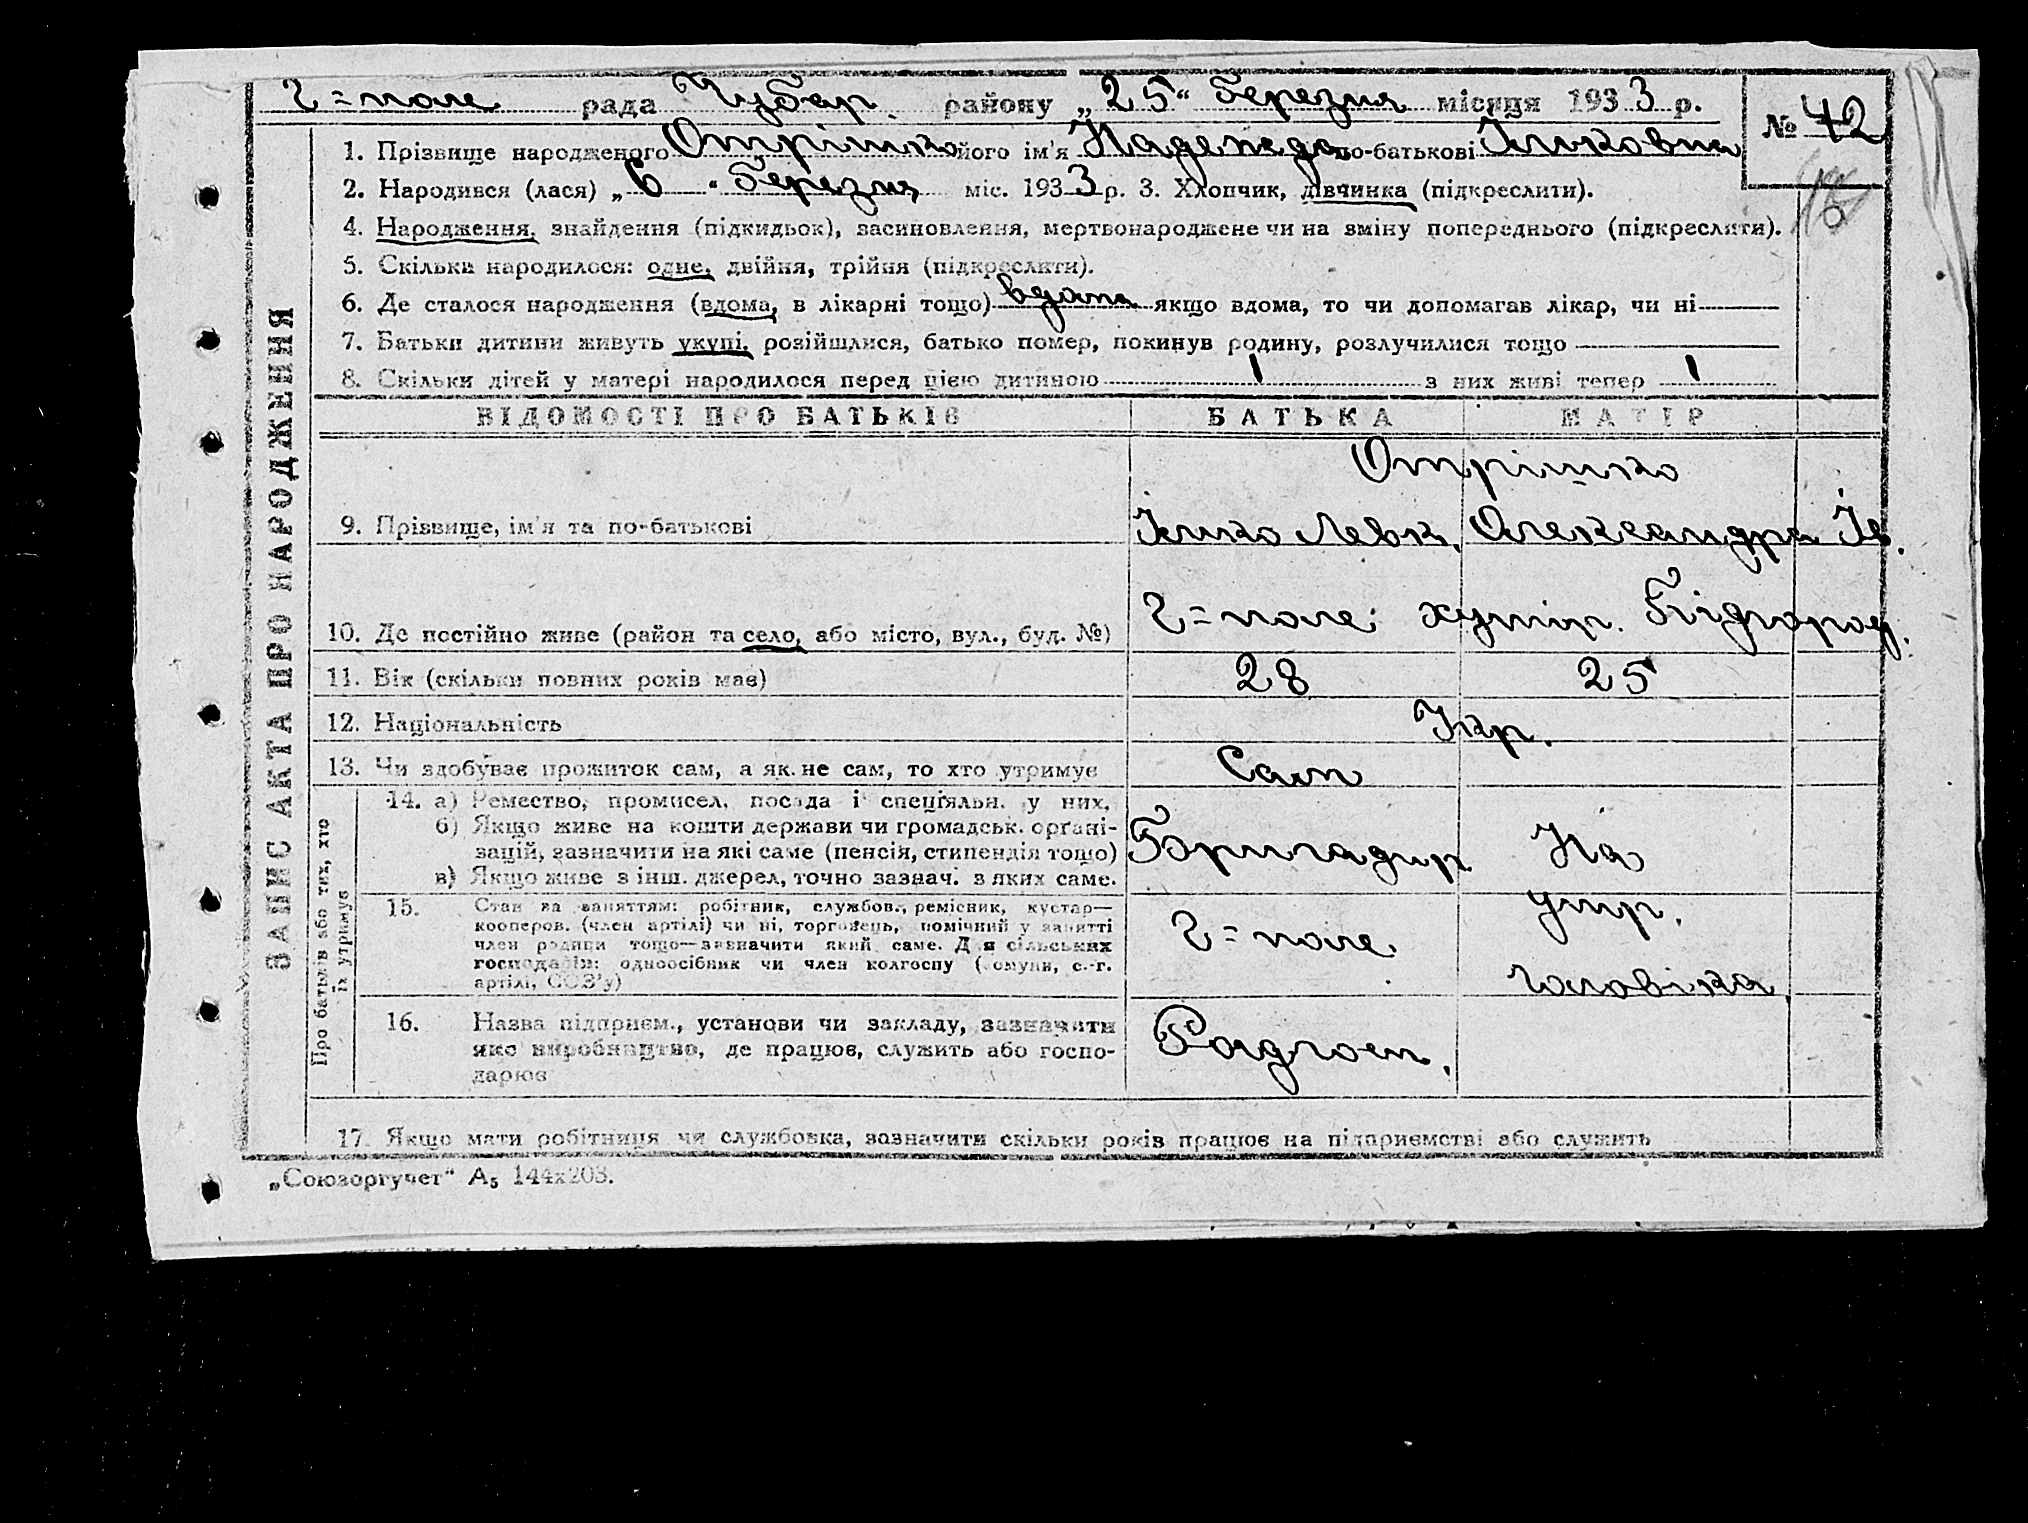 Г=поле рада Чубар. району „25“ березня місяця 1933 р.
№ 42
ЗАПИС АКТА ПРО НАРОДЖЕННЯ
1. Прізвище народженого Отрішко його ім'я Надежда по-батькові
2. Народився (лася) „6“ березня міс. 1933 р. 3. Хлопчик, дівчинка (підкреслити).
4. Народження, знайдення (підкидьок), засиновлення, мертвонароджене чи на зміну попереднього (підкреслити).
5. Скільки народилося: одне, двійня, трійня (підкреслити).
6. Де сталося народження (вдома, в лікарні тощо) вдома якщо вдома, то чи допомагав лікар, чи ні
7. Батьки дитини живуть укупі, розійшлися, батько помер, покинув родину, розлучилися тощо
8. Скільки дітей у матері народилося перед цією дитиною 1 з них живі тепер 1
ВІДОМОСТІ ПРО БАТЬКІВ БАТЬКА МАТІР
Отрішко
9. Прізвище, ім'я та по-батькові Левк. Олександра Ів.
10. Де постійно живе (район та село, або місто, вул., буд. №) Г=поле хутір. Підгород.
11. Вік (скільки повних років має) 28 25
12. Національність Укр.
13. Чи здобуває прожиток сам, а як не сам, то хто утримує Сам
Про батьків або тих, хто
їх утримує
14. а) Ремество, промисел, посада і спеціяльн. у них.
б) Якщо живе на кошти держави чи громадськ. органі-
зацій, зазначити на які саме (пенсія, стипендія тощо)
в) Якщо живе з інш. джерел, точно зазнач. з яких саме.
Бригадир На
утр.
чоловіка
15. Стан за заняттям: робітник, службов., ремісник, кустар—
кооперов. (член артілі) чи ні, торговець, помічний у занятті
член родини тощо—зазначити який саме. Для сільських
господарів: одноосібник чи член колгоспу (комуни, с.-г.
артілі, СОЗ'у)
Г=поле
16. Назва підприєм., установи чи закладу, зазначити
яке виробництво, де працює, служить або госпо-
дарює
Радгосп.
17. Якщо мати робітниця чи службовка, зазначити скільки років працює на підприємстві або служить
„Союзоргучет“ А5 144х203.